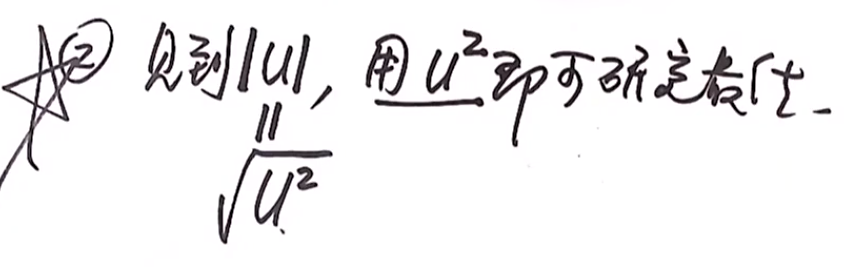 ② 见到|u|, 用u²即可研究最值.
||
√u²